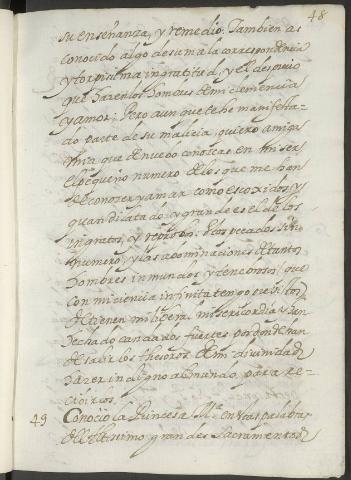 48
su enseñanza, y remedio. Tambien as
conocido algo de su mala correspondencia
y torpissima ingratitud, y el desprecio
que hacen los hombres de mi clemencia
y amor; Pero aunque te he manifesta-
do parte de su malicia, quiero amiga
mia que de nuebo conozcas en mi ser
el pequeño numero de los que me han
de conocer y amar como escoxidos; y
quan dilatado y grande es el de los
ingratos, y reprobos. Los pecados sin
numero, y las abominaciones de tantos
hombres inmundos y tenebrosos, que
con mi ciencia infinita tengo prebistos
detienen mi libera misericordia y han
hechado candados fuertes por donde han
de salir los thesoros de mi diuinidad
hacer indigno al mundo para re-
cibirlos.
49 Conocio la Princesa Mª en estas palabras
del Altissimo grandes Sacramentos d